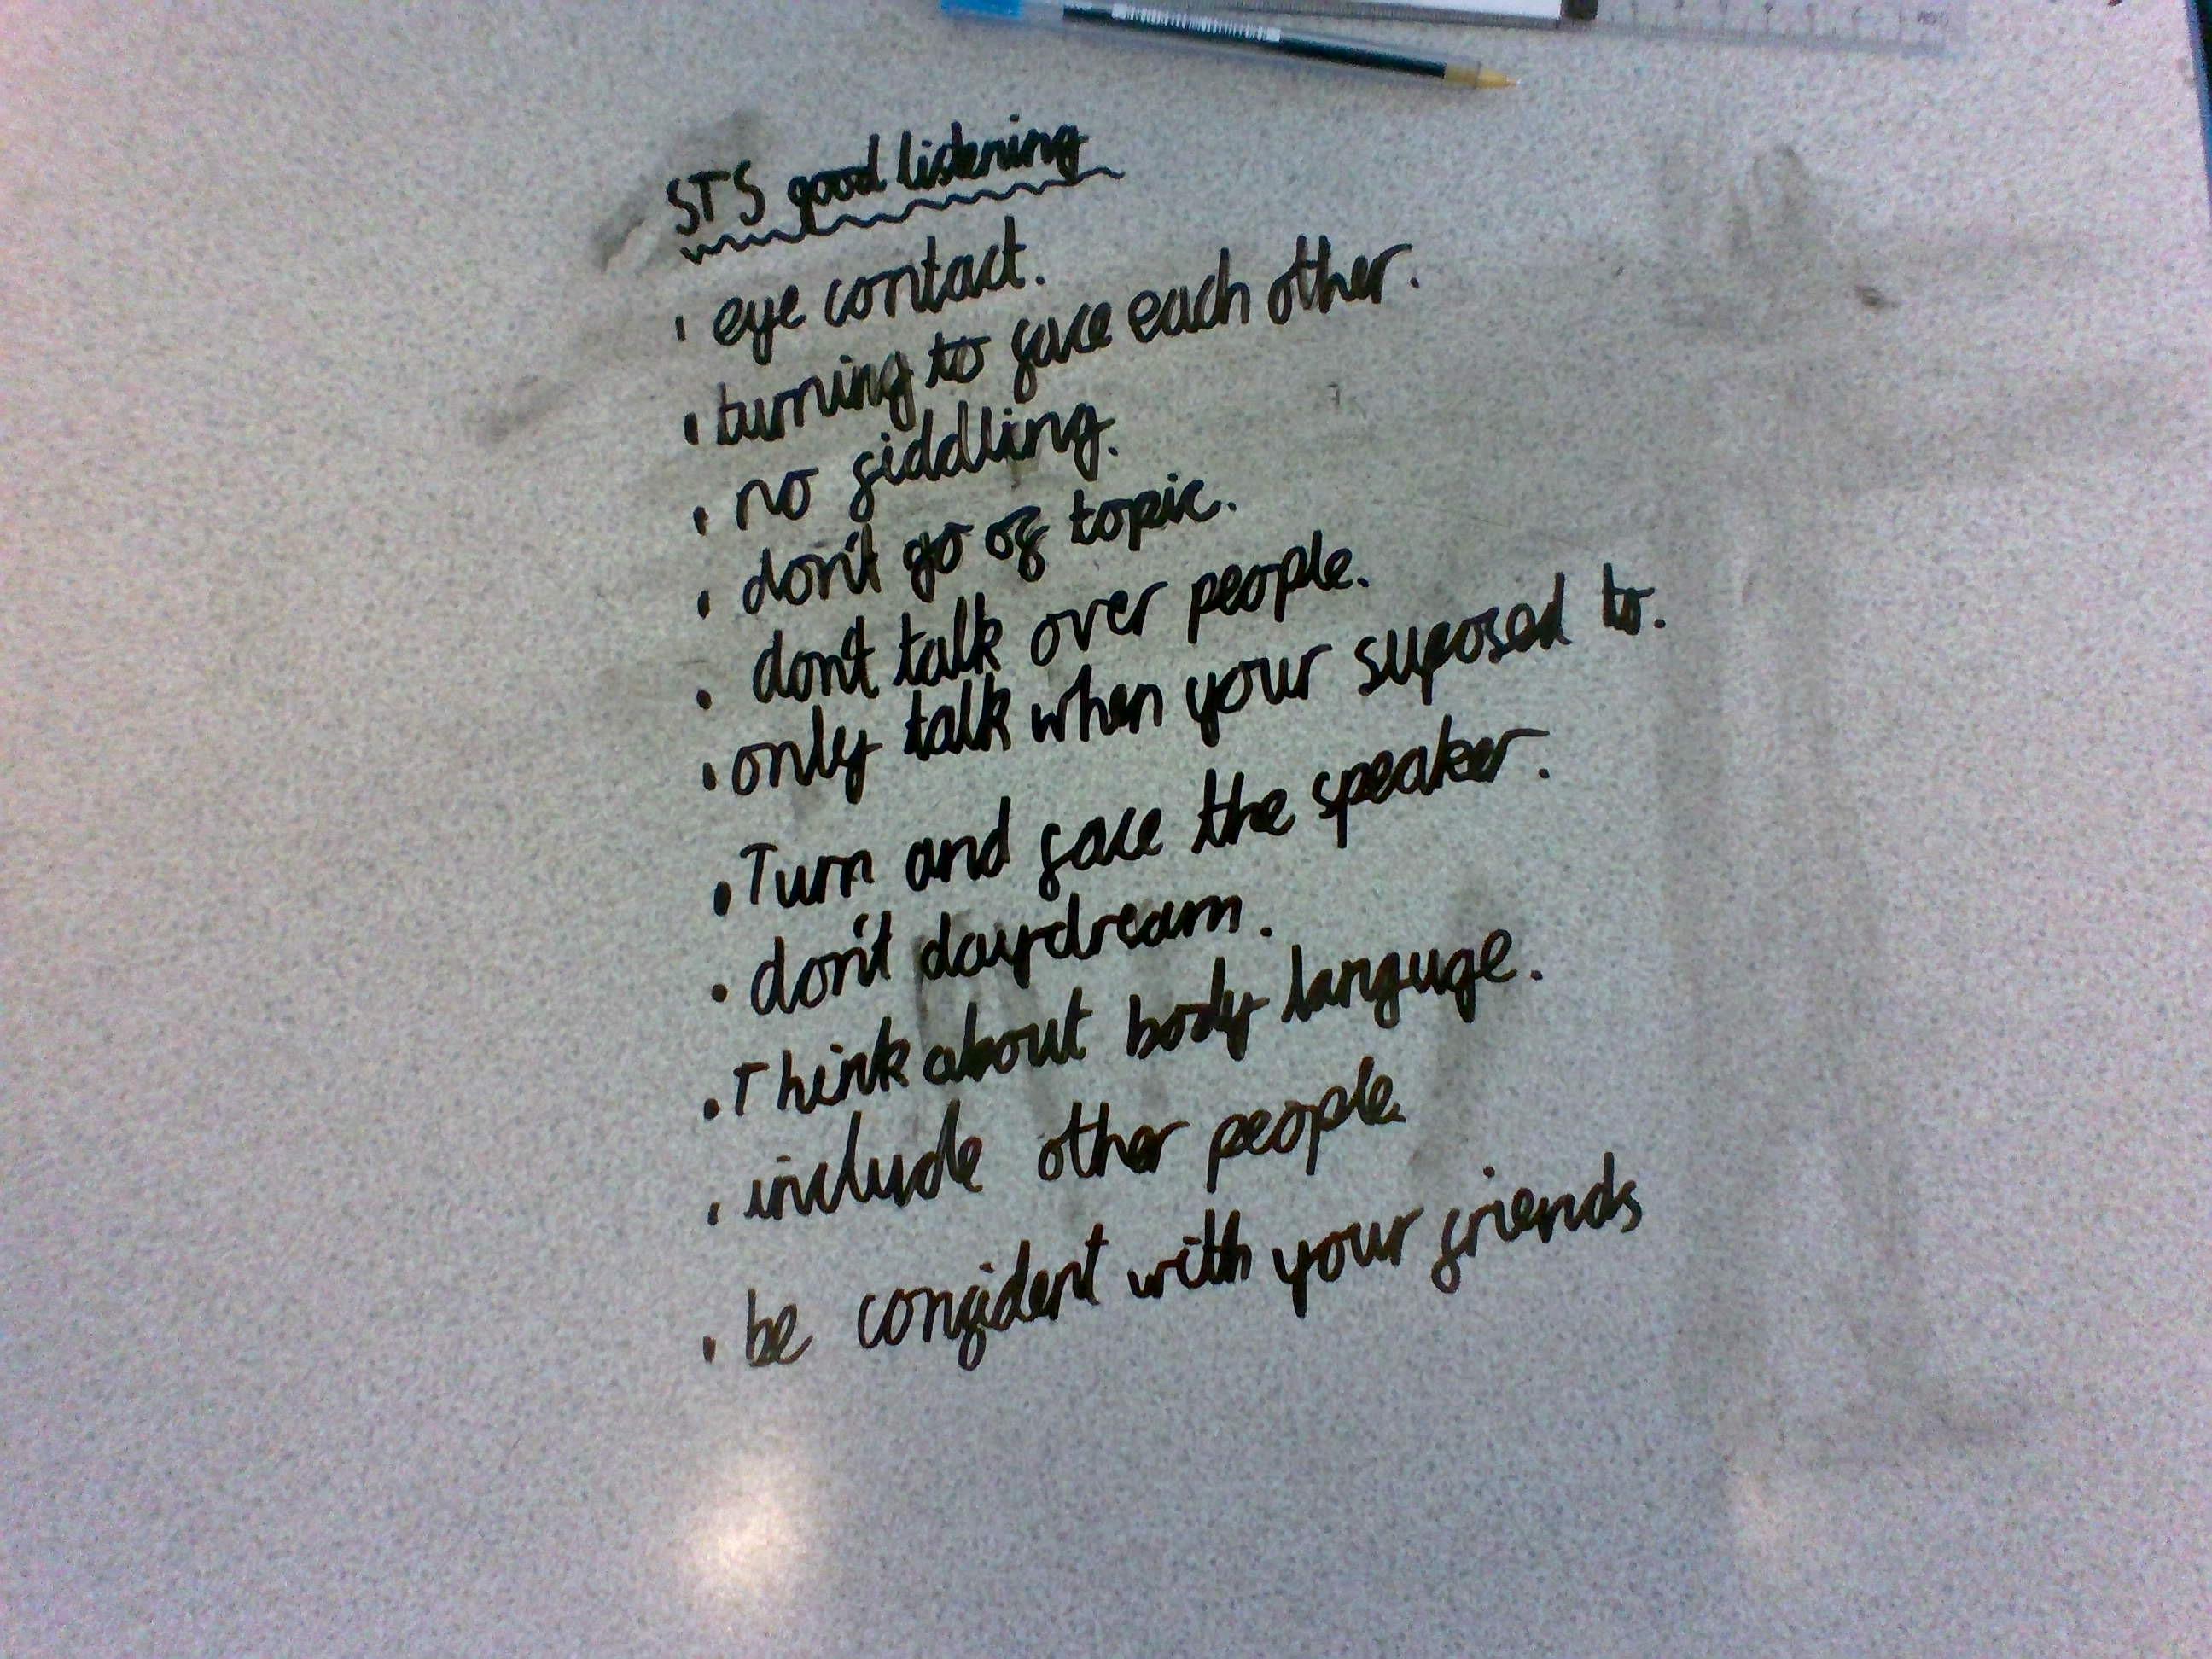 STS good listening
· eye contact.
· turning to face each other.
· no fiddling.
· don't go of topic.
· don't talk over people.
· only talk when your suposed to.
· Turn and face the speaker.
· don't daydream.
· Think about body languge.
· include other people.
· be confident with your friends